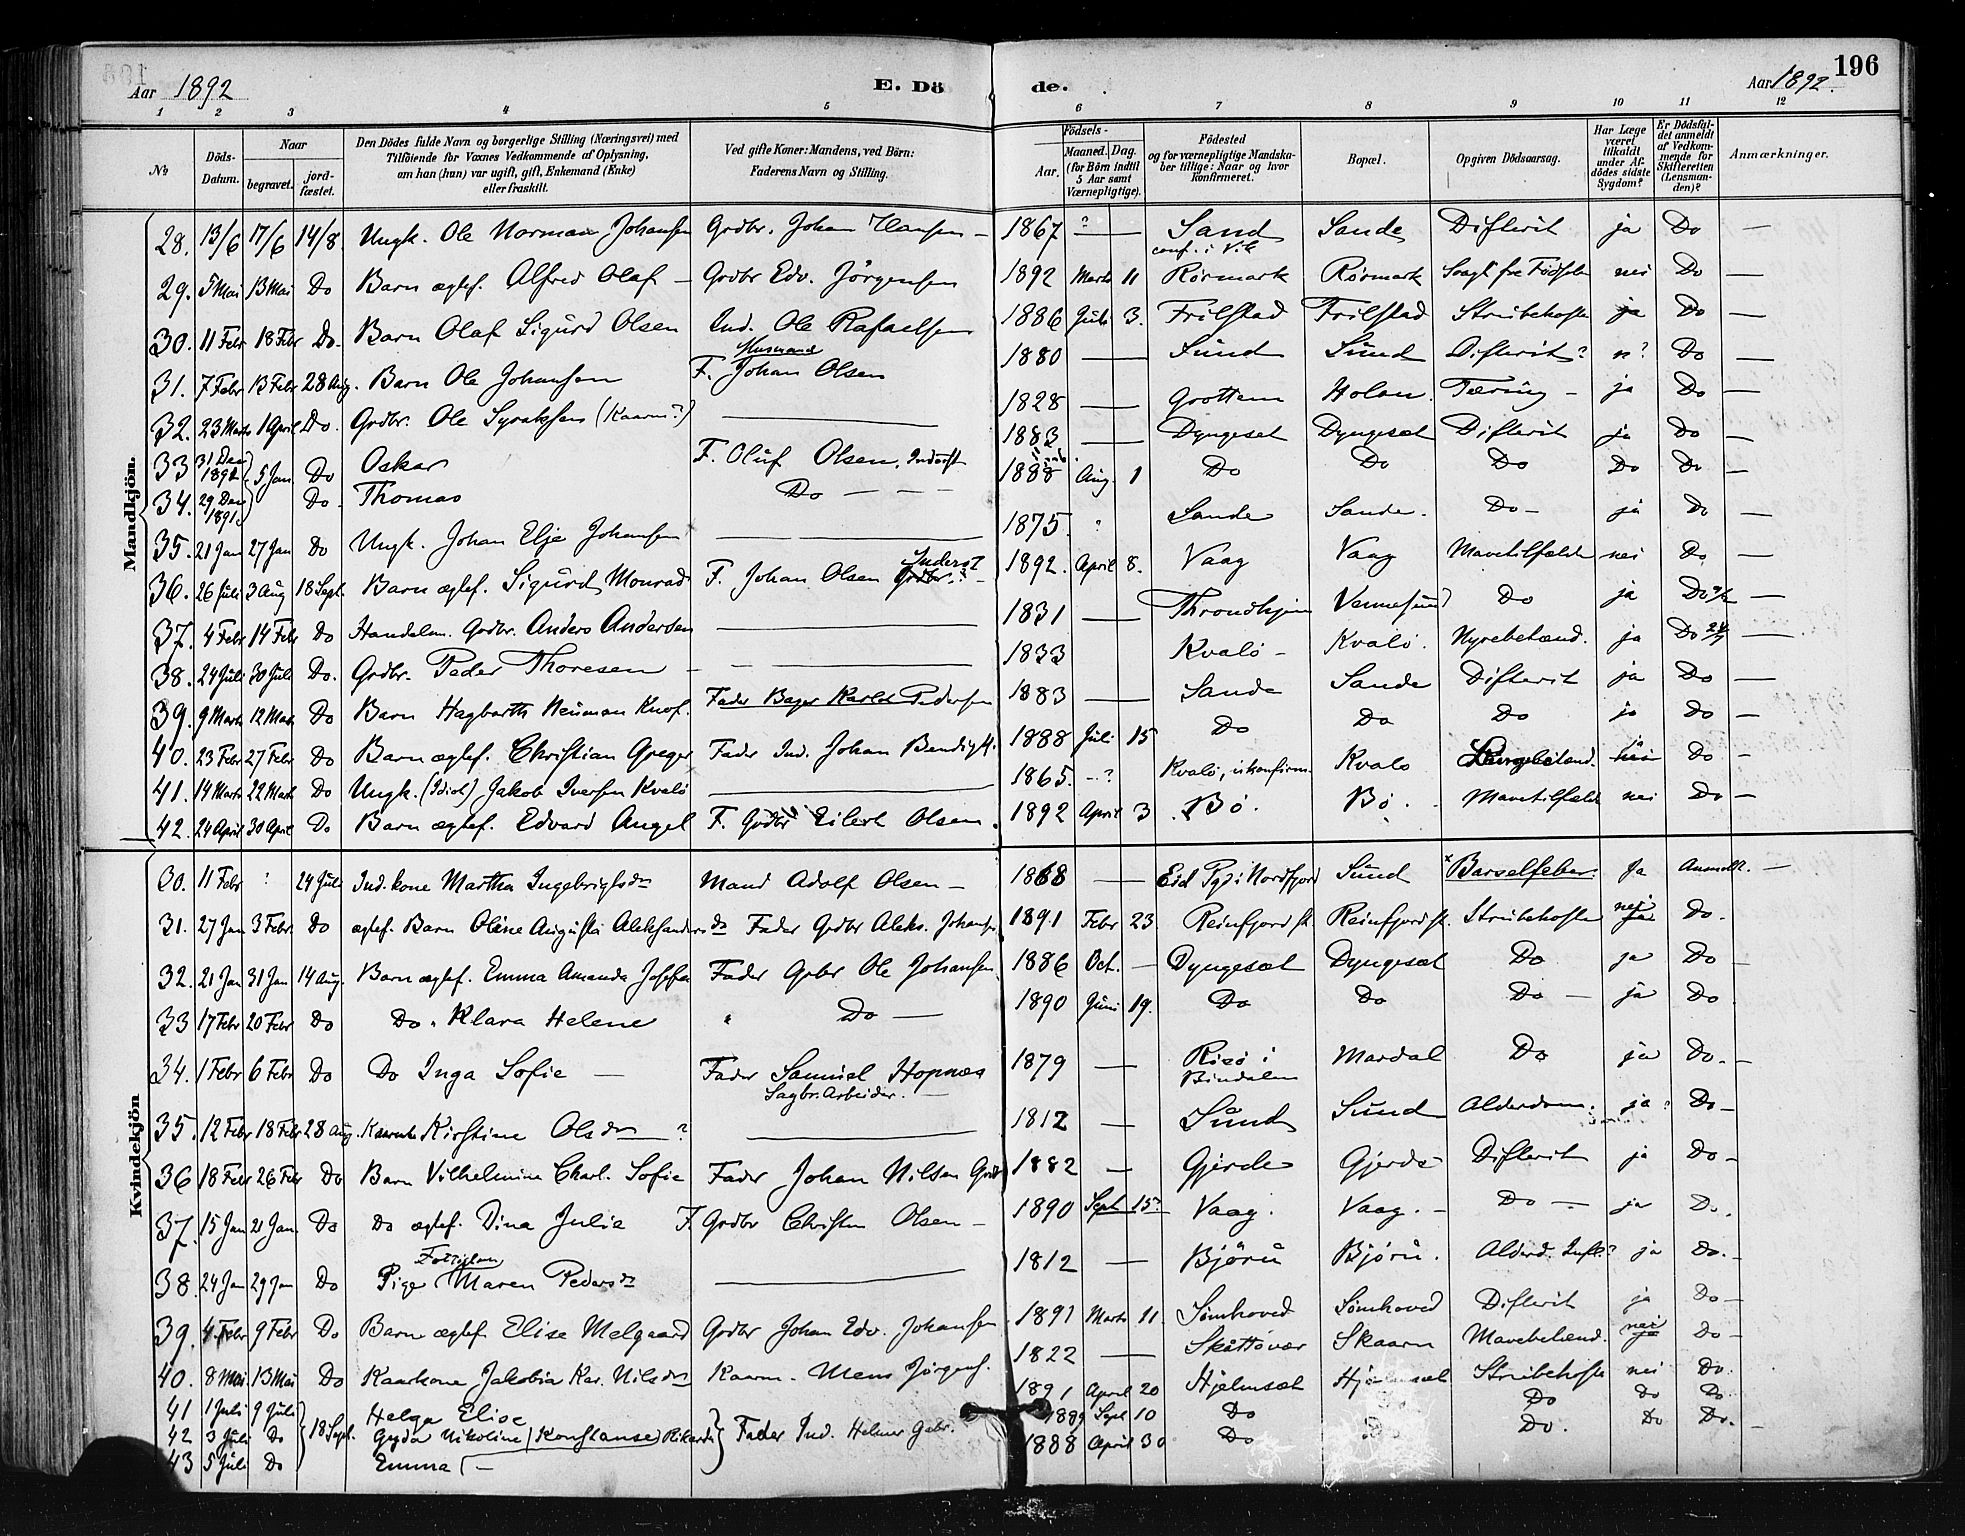 Aar 1892 E. Dö de. Aar 1892. 196
1 2 3 4 5 6 7 8 9 10 11 12
№ Döds-Datum. Naar begravet. jord-fæstet. Den Dödes fulde Navn og borgerlige Stilling (Næringsvei) med Tilföiende for Voxnes Vedkommende af Oplysning, om han (hun) var ugift, gift, Enkemand (Enke) eller fraskilt. Ved gifte Koner: Mandens, ved Börn: Faderens Navn og Stilling. Födsels- Aar. Maaned. Dag. (for Börn indtil 5 Aar samt Værnepligtige). Födested og for værnepligtige Mandska-ber tillige: Naar og hvor konfirmeret. Bopæl. Opgiven Dödsaarsag. Har Læge været tilkaldt under Af-dödes sidste Sygdom? Er Dödsfal-det anmeldt af Vedkom-mende for Skifteretten (Lensman-den)? Anmærkninger.
Mandkjön.
28. 13/6 17/6 14/8. Ungk. Ole Norman Johansen Grdbr. Johan Hansen – 1867 ? — Sand conf. i Vik Sande Difterit ja Do —
29. 5 Mai 13 Mai Do Barn ægtef. Alfred Olaf – Grdbr Edv. Jörgensen 1892 Marts 11 Rörmark Rörmark Svagh. fra Födslen nei Do —
30. 11 Febr 18 Febr Do. Barn Olaf Sigurd Olsen Ind. Ole Rafaelsen 1886 Juli 3. Frilstad Frilstad Strubehoste ja Do —
31. 7 Febr 13 Febr 28 Aug. Barn Ole Johansen Husmand F. Johan Olsen 1880 — Sund Sund Difterit? n? Do —
32. 23 Marts 1 April Do. Grdbr. Ole Syraksen (Kaarm?) — 1828 — Grottem Holm. Tæring – ja Do —
33 31 Dec 1892 5 Jan Do Oskar F. Oluf Olsen, Inderst 1883 — Dyngeset Dyngeset Difterit ja Do —
34. 29 Dec 1891. Do. Thomas Do — — — 1888 Aug. 1 Do Do Do Do Do —
35. 21 Jan 27 Jan Do Ungk. Johan Elje Johansen — 1875. ? Sande Sande. Do – ja Do —
36. 26 Juli 3 Aug 18 Sept. Barn ægtef. Sigurd Monrad F. Johan Olsen Inderst Grdbr.? – 1892. April 8. Vaag Vaag Mavetilfælde nei Do. —
37. 4 Febr 14 Febr Do Handelsm. Grdbr. Anders Andersen — 1831 — Throndhjem Vennesund Do ja Do —
38. 24 Juli 30 Juli Do. Grdbr. Peder Thoresen – — 1833 Kvalö – Kvalö. Nyrebetænd. ja Do 24/7 —
39. 9 Marts 12 Mar Do Barn Hagbarth Neuman Knof. Fader Bager Karlot Pedersen 1883 — Sande Sande Difterit ja Do —
40. 23 Febr 27 Febr Do Barn ægtef. Christian Greger Fader Ind. Johan Bendigts. 1888 Juli 15 Do Do Do ja Do —
41. 14 Marts 22 Marts Do Ungk. (Idiot) Jakob Iversen Kvalö — 1865. – ? Kvalö, ukonfirm. Kvalo ja nei Do –
42. 24 April 30 April Do Barn ægtef. Edvard Angel F. Grdbr Eilert Olsen. 1892 April 3 Bö. Bö. Mavetilfælde nei Do –
Kvindekjön
30. 11 Febr ? 24 Juli Ind. kone Martha Ingebrigtsdr Mand Adolf Olsen – 1868 — Eid Pgd i Nordfjord Sund × Barselfeber. Ja Anmeldt. —
31. 27 Jan 3 Febr. Do ægtef. Barn Oline Augusta Aleksandersdr Fader Grdbr Aleks. Johansen 1891 Febr 23 Reinfjord st. Reinfjord st. Strubehoste nei ja Do.
32. 21 Jan 31 Jan 14 Aug. Barn ægtef. Emma Amanda Josefa Fader Grbr Ole Johansen 1886 Oct. — Dyngeset Dyngeset Do ja Do –
33 17 Febr 20 Febr Do Do. Klara Helene " Do — 1890 Juni 19. Do Do Do – ja Do
34. 1 Febr 6 Febr Do Do Inga Sofie — Fader Samuel Hopnæs Sagbr. Arbeider. 1879 — Risö i Bindalen Mardal Do ja Do. –
35. 12 Febr 18 Febr 28 Aug. Kirstine Olsdr — ? — 1812 — Sund Sund Alderdom. ja ? Do –
36 18 Febr 26 Febr Do Barn Vilhelmine Charl. Sofie Fader Johan Nilsen Grdb 1882 — Gjerde Gjerde Difterit ja Do –
37. 15 Jan 21 Jan. Do Do ægtef. Dina Julia F. Grdbr Christen Olsen – 1890 Sept 15? Vaag. Vaag. – Do – ja Do.
38. 24 Jan 29 Jan Do Pige Maren Pedersdr — 1812 — Björu Björu. Alderd. Infl.? ja Do. –
39. 4 Febr 9 Febr Do Barn ægtef. Elise Melgaard Grdbr Johan Edv. Johansen 1891 Marts 11. Sömhoved Sömhoved Difterit ja Do –
40. 8 Mai 13 Mai Do Kaarkone Jakobia Kar. Nilsdr Kaarm. Mens Jörgens. 1822 — Skattövær Skaarn Mavebetænd. nei ja Do –
41 1 Juli 9 Juli 18 Sept. Helga Elise Fader Ind. Helmer Gabr. 1891 April 20 Hjelmset Hjelmset Strubehoste nei Do.
42 3 Juli Do Gyda Nikoline (Konstanse) Rikarda 1889 Sept 10 Do Do Do Do
43 5 Juli Do Emma 1888 April 30 Do Do Do. Do Do. –